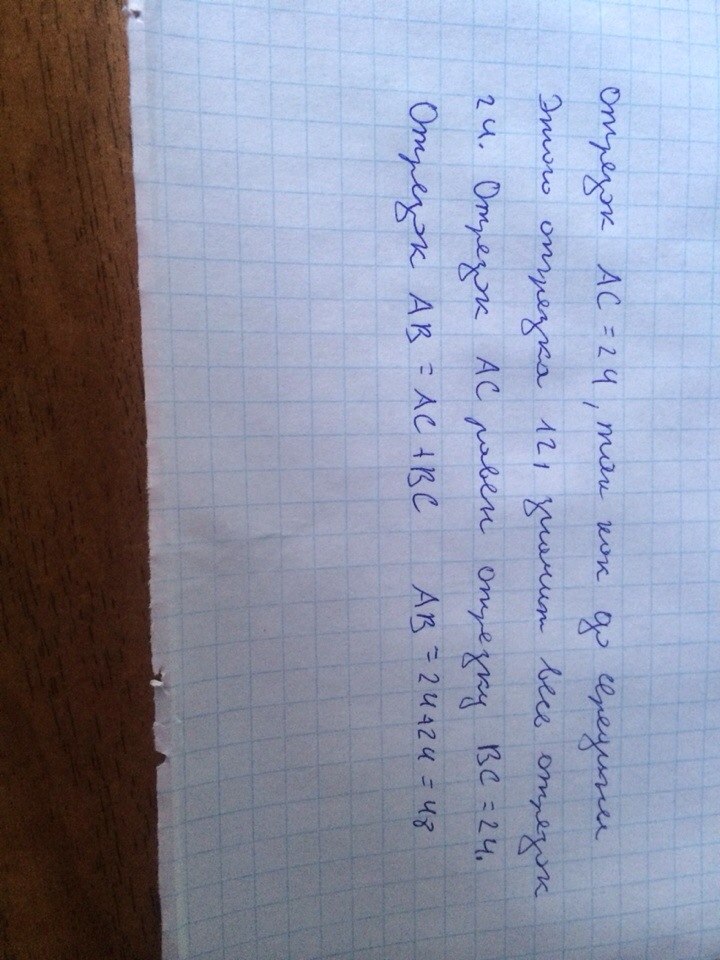 Отрезок AC = 24, так как до середины
этого отрезка 12, значит весь отрезок
24. Отрезок AC равен отрезку BC = 24.
Отрезок AB = AC + BC AB = 24 + 24 = 48